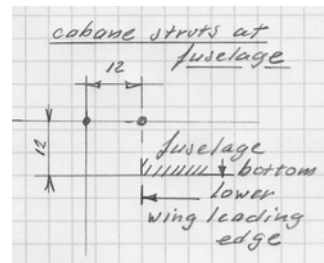 cabane struts at
fuselage
12
12
fuselage
bottom
lower
wing leading
edge